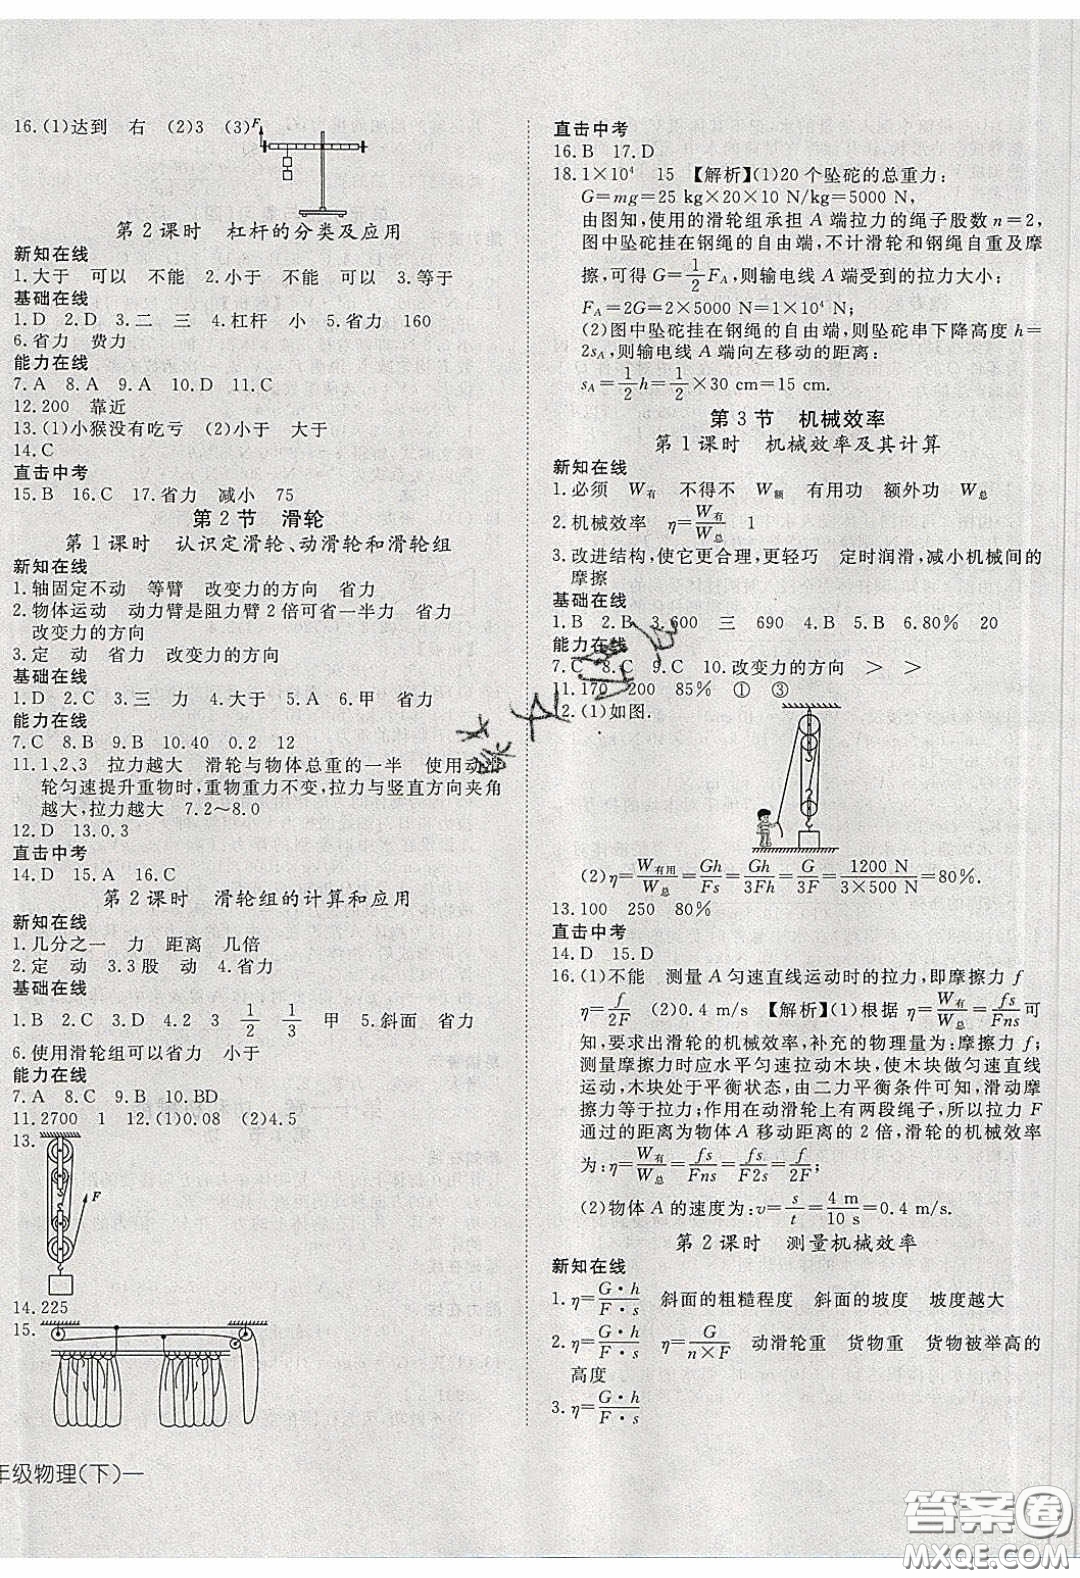 16.(1)达到　右　(2)3　(3)F
第2课时　杠杆的分类及应用
新知在线
1.大于　可以　不能　2.小于　不能　可以　3.等于
基础在线
1.D　2.D　3.二　三　4.杠杆　小　5.省力　160
6.省力　费力
能力在线
7.A　8.A　9.A　10.D　11.C
12.200　靠近
13.(1)小猴没有吃亏　(2)小于　大于
14.C
直击中考
15.B　16.C　17.省力　减小　75
第2节　滑轮
第1课时　认识定滑轮、动滑轮和滑轮组
新知在线
1.轴固定不动　等臂　改变力的方向　省力
2.物体运动　动力臂是阻力臂2倍可省一半力　省力
改变力的方向
3.定　动　省力　改变力的方向
基础在线
1.D　2.C　3.三　力　4.大于　5.A　6.甲　省力
能力在线
7.C　8.B　9.B　10.40　0.2　12
11.1、2、3　拉力越大　滑轮与物体总重的一半　使用动滑
轮匀速提升重物时,重物重力不变,拉力与竖直方向夹角
越大,拉力越大　7.2～8.0
12.D　13.0.3
直击中考
14.D　15.A　16.C
第2课时　滑轮组的计算和应用
新知在线
1.几分之一　力　距离　几倍
2.定　动　3.3股　动　4.省力
基础在线
1.B　2.C　3.D　4.2　3　1/2　1/3　甲　5.斜面　省力
6.使用滑轮组可以省力　小于
能力在线
7.A　8.C　9.B　10.BD
11.2700　1　12.(1)0.08　(2)4.5
13.
F
14.225
15.
年级物理(下)—
直击中考
16.B　17.D
18.1×10⁴　15　【解析】(1)20个坠砣的总重力:
G=mg=25 kg×20×10 N/kg=5000 N,
由图知,使用的滑轮组承担A端拉力的绳子股数n=2,
图中坠砣挂在钢绳的自由端,不计滑轮和钢绳自重及摩
擦,可得G=1/2 F_A;则输电线A端受到的拉力大小:
F_A=2G=2×5000 N=1×10⁴ N;
(2)图中坠砣挂在钢绳的自由端,则坠砣串下降高度h=
2s_A,则输电线A端向左移动的距离:
s_A=1/2 h=1/2×30 cm=15 cm.
第3节　机械效率
第1课时　机械效率及其计算
新知在线
1.必须　W有　不得不　W额　有用功　额外功　W总
2.机械效率　η=W有/W总　1
3.改进结构,使它更合理,更轻巧　定时润滑,减小机械间的
摩擦
基础在线
1.B　2.B　3.600　三　690　4.B　5.B　6.80%　20
能力在线
7.C　8.C　9.C　10.改变力的方向　＞　＞
11.170　200　85%　①　③
12.(1)如图.
(2)η=W有用/W总=Gh/Fs=Gh/3Fh=G/3F=1200 N/3×500 N=80%.
13.100　250　80%
直击中考
14.D　15.D
16.(1)不能　测量A匀速直线运动时的拉力,即摩擦力f
η=f/2F　(2)0.4 m/s　【解析】(1)根据η=W有/W总=fs/Fns可
知,要求出滑轮的机械效率,补充的物理量为:摩擦力f;
测量摩擦力时应水平匀速拉动木块,使木块做匀速直线
运动,木块处于平衡状态,由二力平衡条件可知,滑动摩
擦力等于拉力;作用在动滑轮上有两段绳子,所以拉力F
通过的距离为物体A移动距离的2倍,滑轮的机械效率
为:η=W有/W总=fs/Fns=fs/F2s=f/2F;
(2)物体A的速度为:v=s/t=4 m/10 s=0.4 m/s.
第2课时　测量机械效率
新知在线
1.η=G·h/F·s　斜面的粗糙程度　斜面的坡度　坡度越大
2.η=G·h/F·s　η=G/n×F　动滑轮重　货物重　货物被举高的
高度
3.η=G·h/F·s
答案圈
MXQE.COM